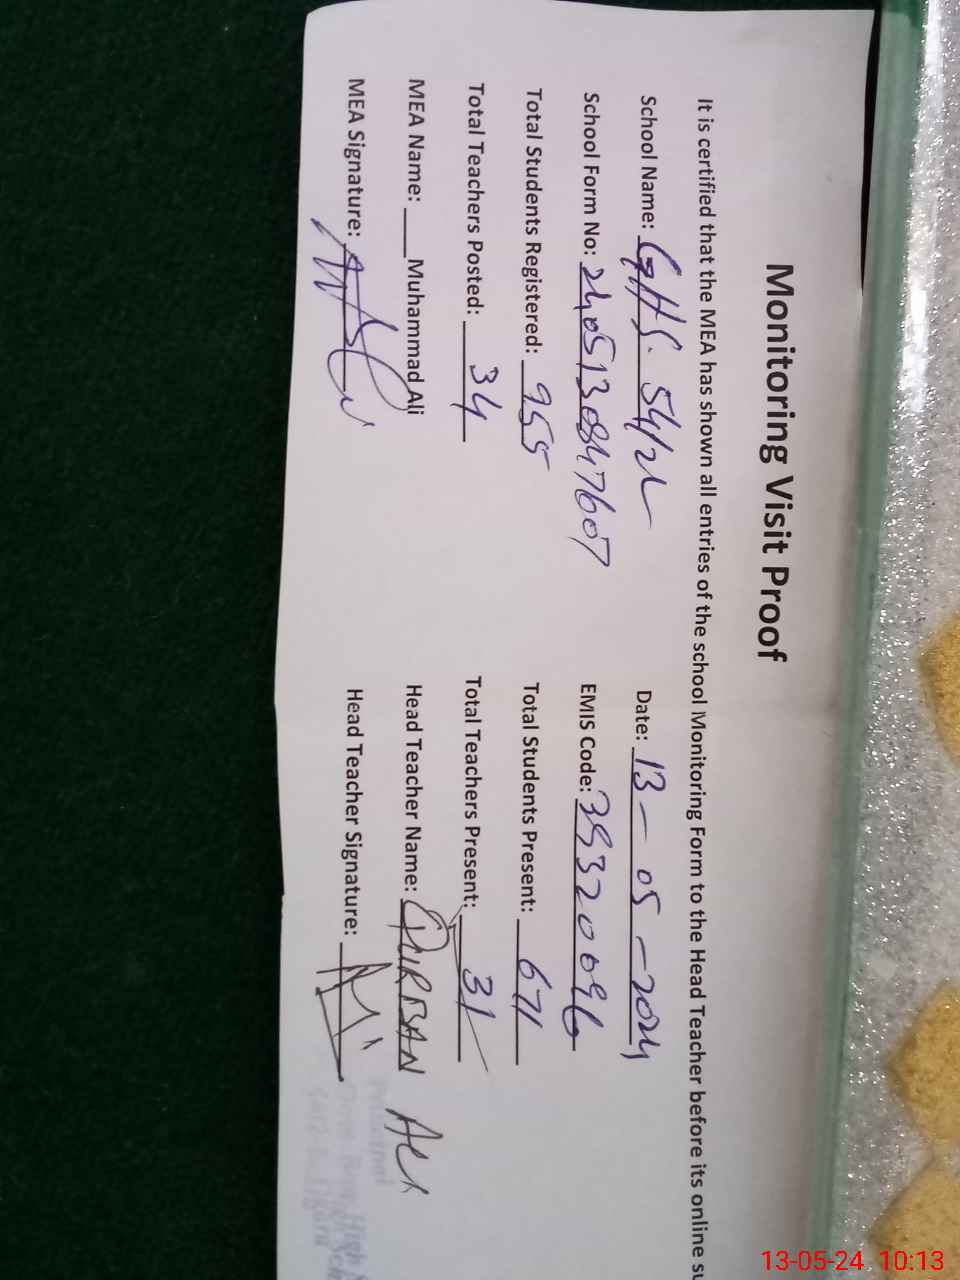 Monitoring Visit Proof
It is certified that the MEA has shown all entries of the school Monitoring Form to the Head Teacher before its online
School Name: GHS. 54/2L Date: 13-05-2024
School Form No: 2405130847607 EMIS Code: 39320096
Total Students Registered: 955 Total Students Present: 671
Total Teachers Posted: 34 Total Teachers Present: 31
MEA Name: Muhammad Ali Head Teacher Name: QURBAN Ali
MEA Signature: Head Teacher Signature:
Principal
High
13-05-24 10:13